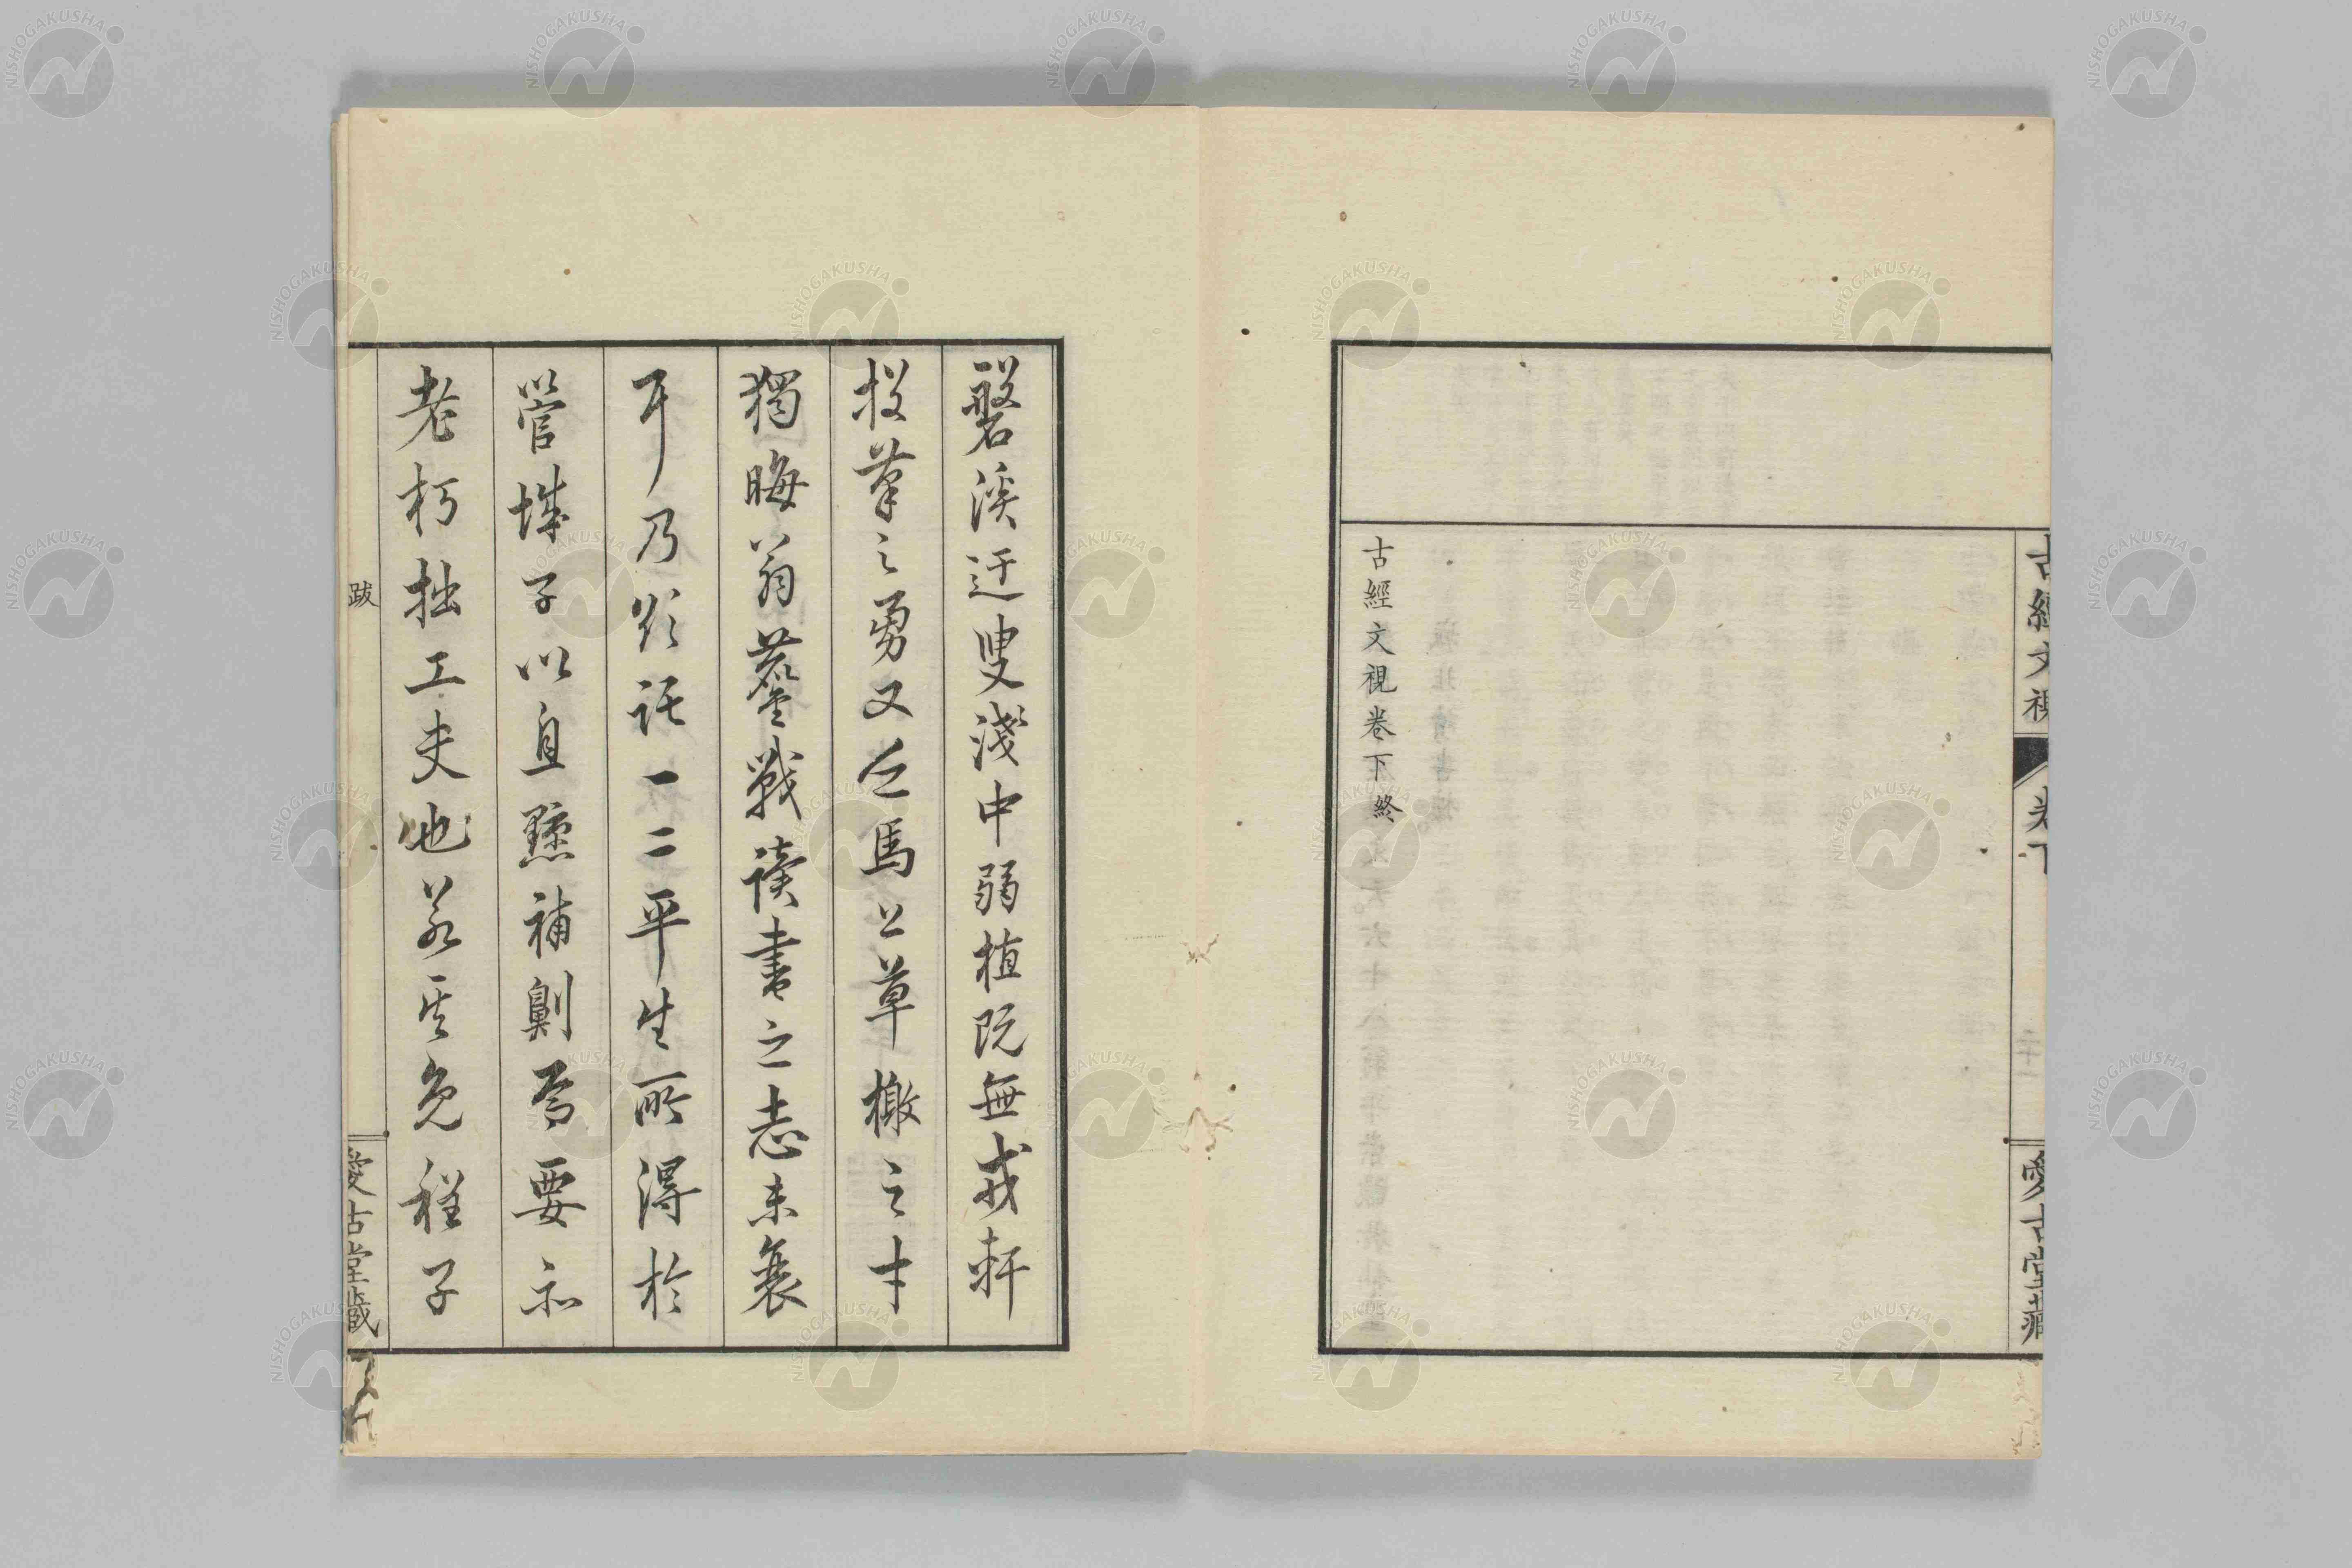 古經文視卷下終
古經文視
卷下
愛古堂藏
磐溪迂叟淺中弱植既無戎軒
投筆之勇又乏馬上草檄之才
獨晦翁鏖戰讀書之志未衰
耳乃欲託一二平生所得於
管城子以自黥補劓焉要示
老朽拙工夫也若其免程子
跋
愛古堂藏
NISHOGAKUSHA